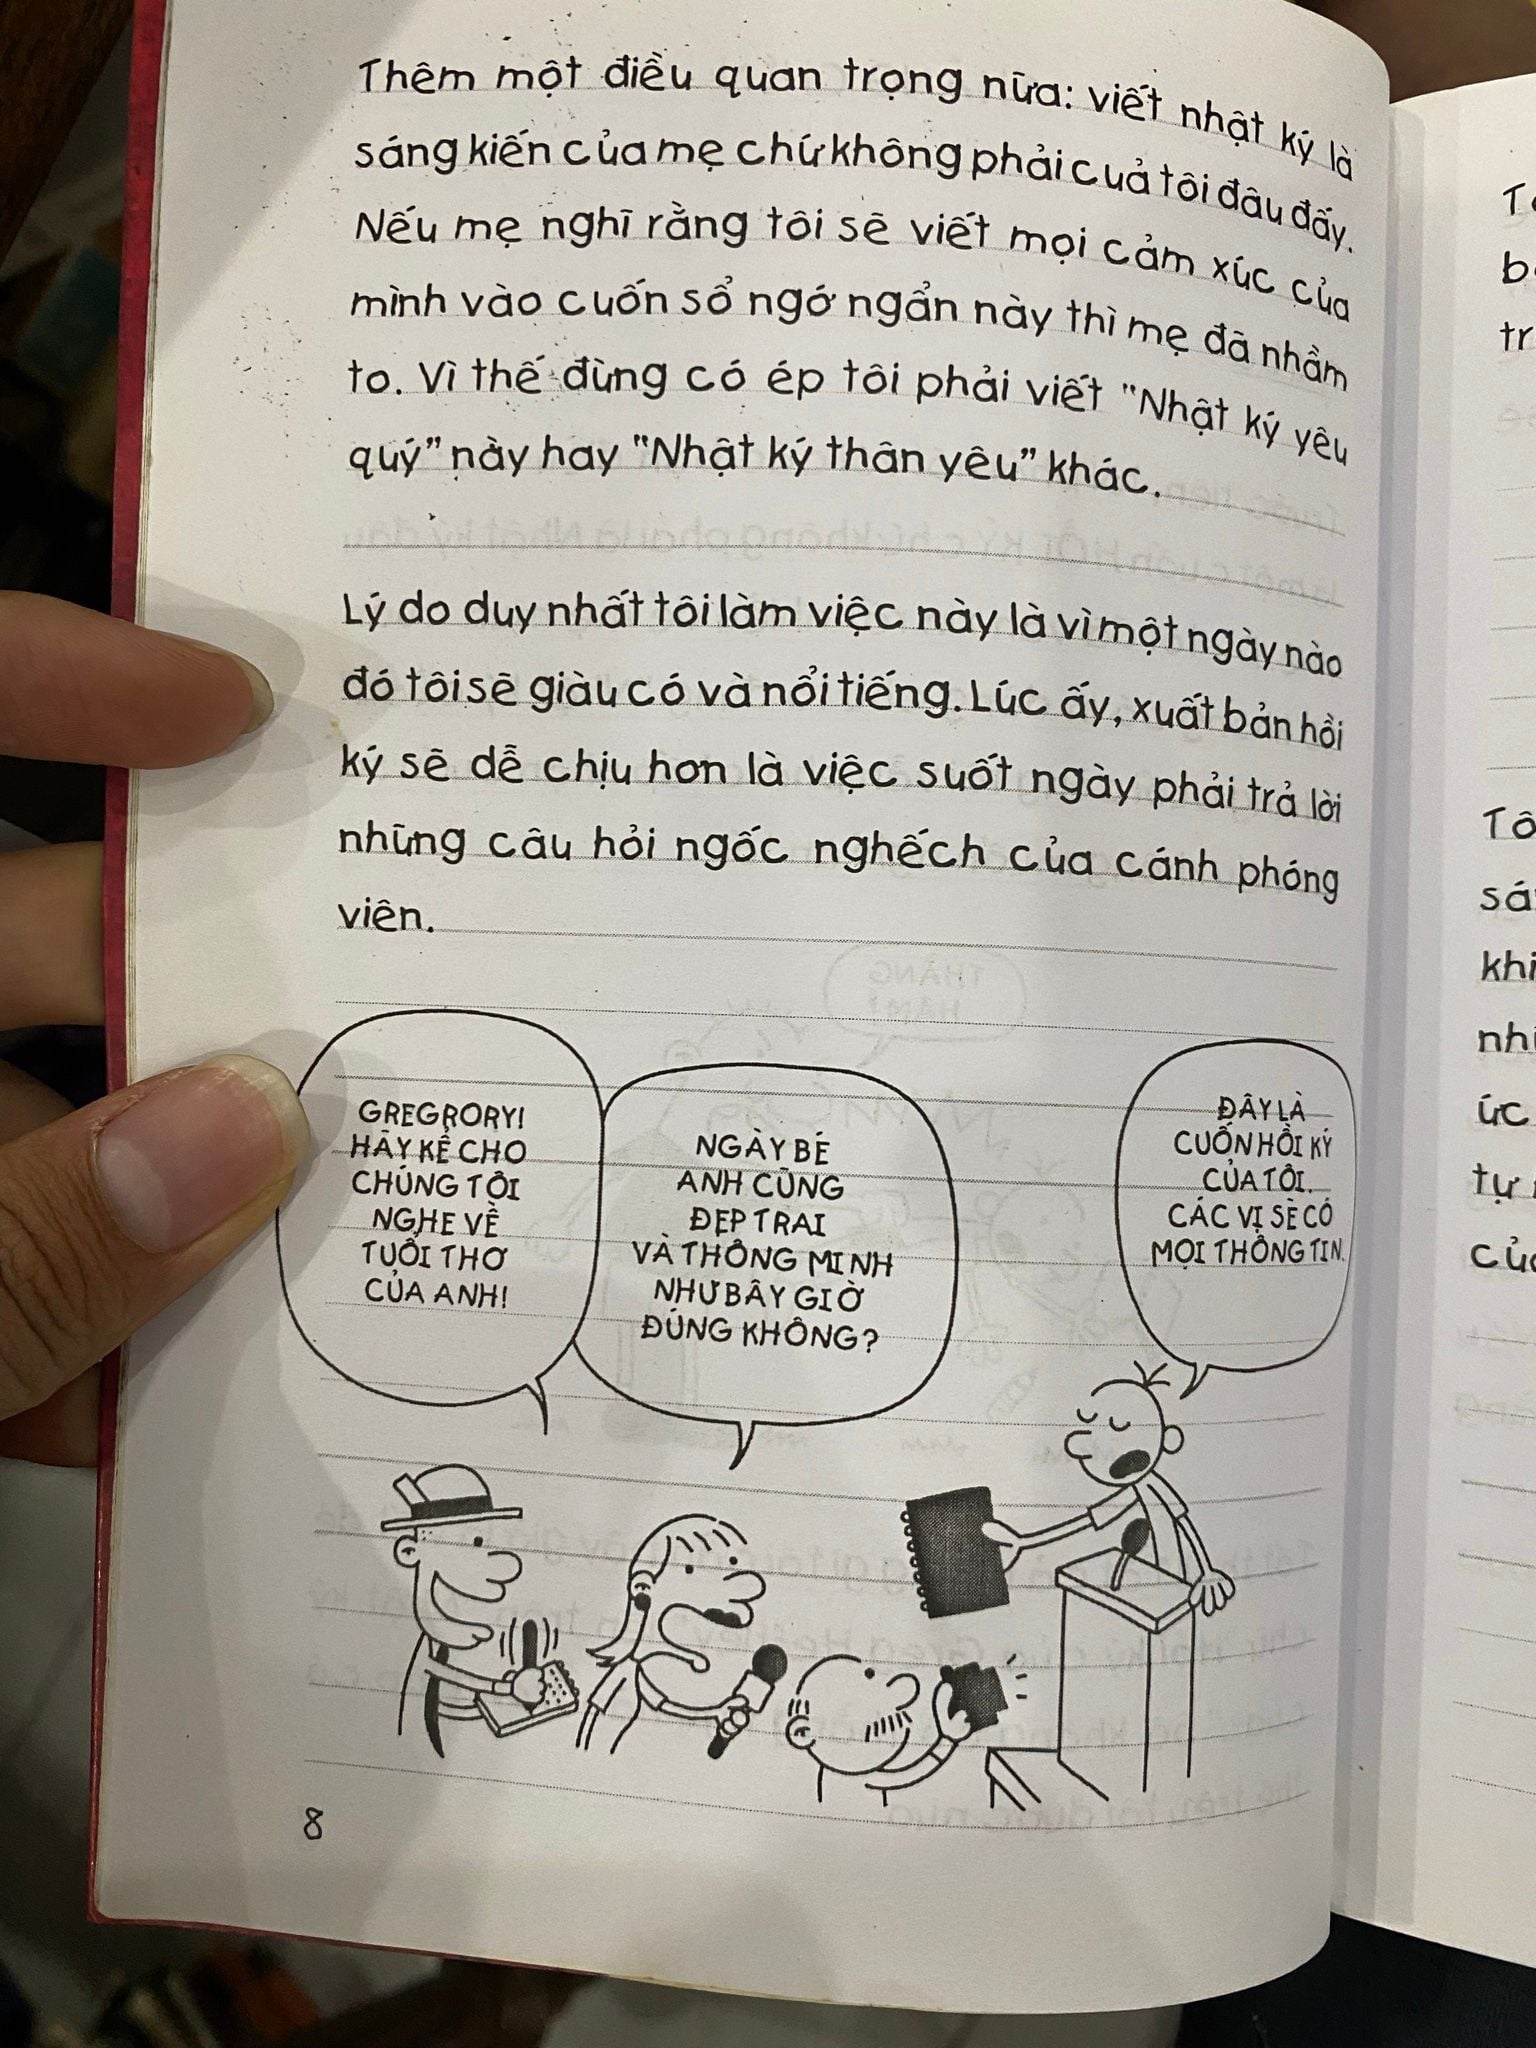 Thêm một điều quan trọng nữa: viết nhật ký là
sáng kiến của mẹ chứ không phải cuả tôi đâu đấy.
Nếu mẹ nghĩ rằng tôi sẽ viết mọi cảm xúc của
mình vào cuốn sổ ngớ ngẩn này thì mẹ đã nhầm
to. Vì thế đừng có ép tôi phải viết "Nhật ký yêu
quý" này hay "Nhật ký thân yêu" khác.
Lý do duy nhất tôi làm việc này là vì một ngày nào
đó tôi sẽ giàu có và nổi tiếng. Lúc ấy, xuất bản hồi
ký sẽ dễ chịu hơn là việc suốt ngày phải trả lời
những câu hỏi ngốc nghếch của cánh phóng
viên.
GREGRORY!
HÃY KỂ CHO
CHÚNG TÔI
NGHE VỀ
TUỔI THƠ
CỦA ANH!
NGÀY BÉ
ANH CŨNG
ĐẸP TRAI
VÀ THÔNG MINH
NHƯ BÂY GIỜ
ĐÚNG KHÔNG?
ĐÂY LÀ
CUỐN HỒI KÝ
CỦA TÔI.
CÁC VỊ SẼ CÓ
MỌI THÔNG TIN.
8